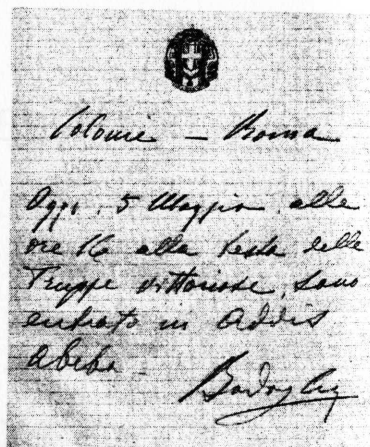 Colonie - Roma
Oggi, 5 Maggio, alle
ore 16 alla testa delle
Truppe vittoriose, sono
entrato in Addis
Abeba -
Badoglio